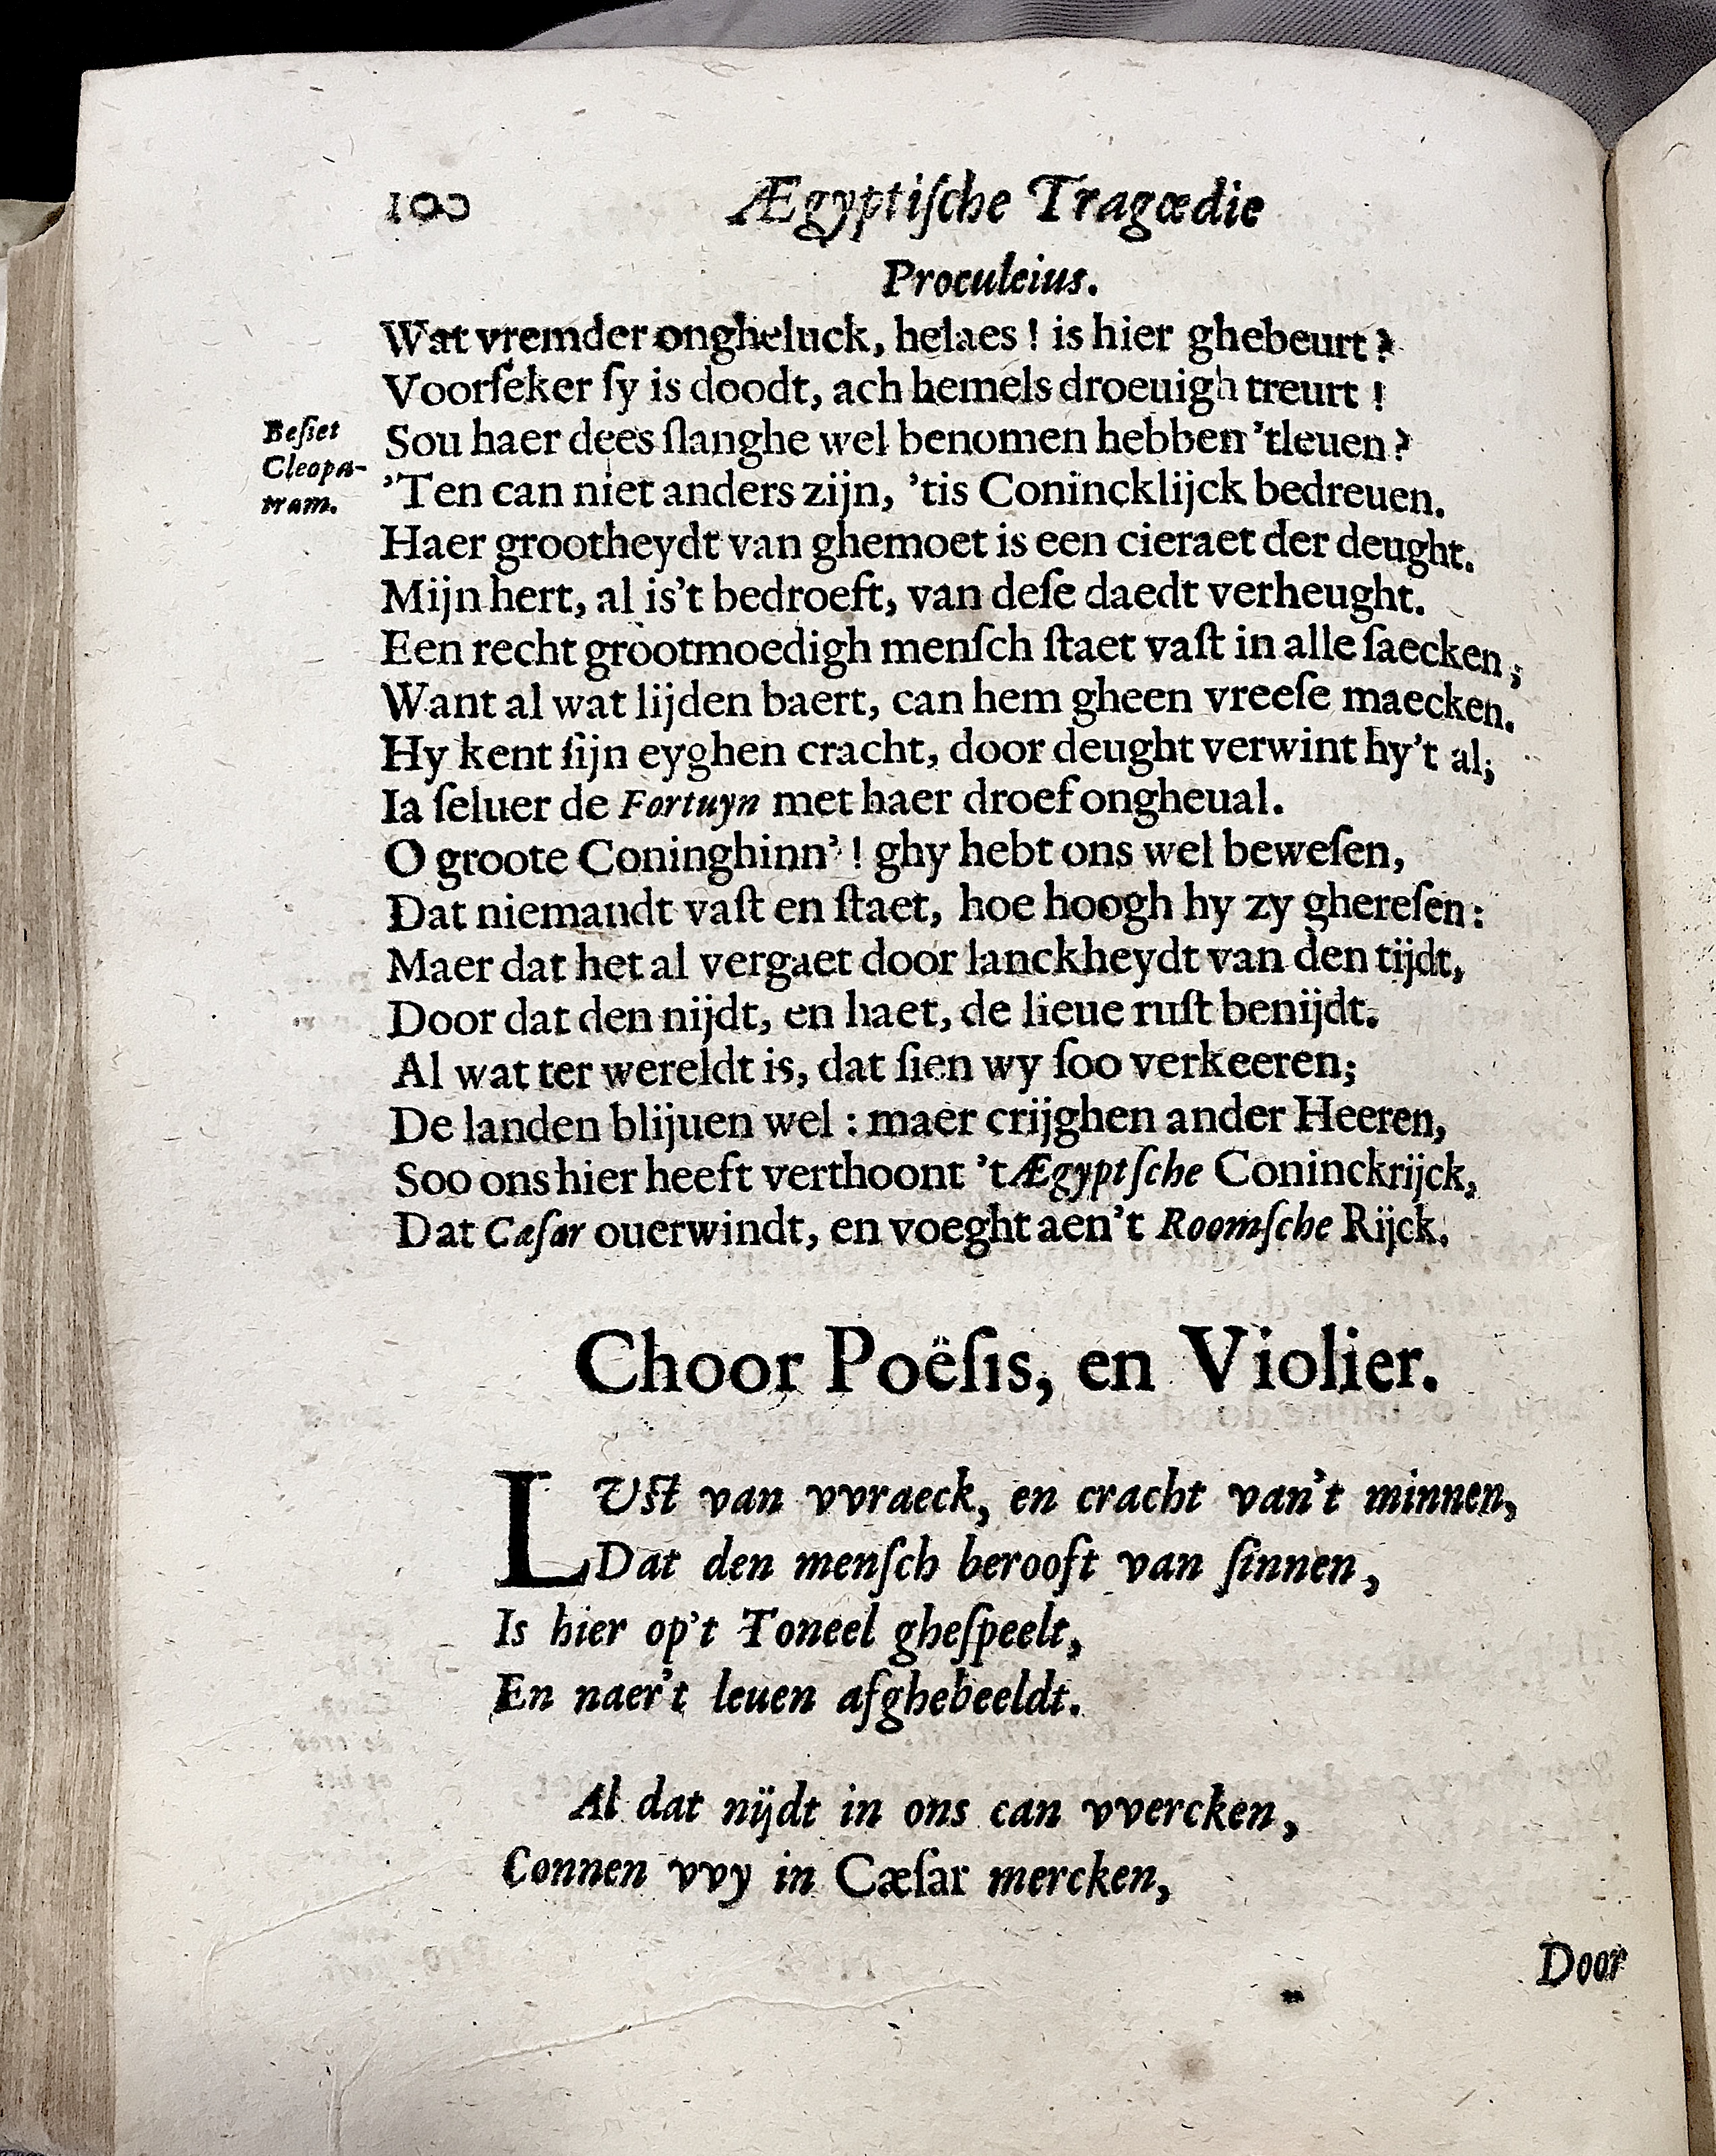 100 Ægyptiſche Tragœdie
Proculeius.
Wat vremder ongheluck, helaes! is hier ghebeurt?
Voorſeker ſy is doodt, ach hemels droeuigh treurt!
Beſiet
Cleopa-
tram.
Sou haer dees ſlanghe wel benomen hebben 'tleuen?
'Ten can niet anders zijn, 'tis Conincklijck bedreuen.
Haer grootheydt van ghemoet is een cieraet der deught.
Mijn hert, al is't bedroeft, van deſe daedt verheught.
Een recht grootmoedigh menſch ſtaet vaſt in alle ſaecken;
Want al wat lijden baert, can hem gheen vreeſe maecken.
Hy kent ſijn eyghen cracht, door deught verwint hy't al;
Ia ſeluer de Fortuyn met haer droef ongheual.
O groote Coninghinn'! ghy hebt ons wel beweſen,
Dat niemandt vaſt en ſtaet, hoe hoogh hy zy ghereſen:
Maer dat het al vergaet door lanckheydt van den tijdt,
Door dat den nijdt, en haet, de lieue ruſt benijdt.
Al wat ter wereldt is, dat ſien wy ſoo verkeeren;
De landen blijuen wel: maer crijghen ander Heeren,
Soo ons hier heeft verthoont 't Ægyptſche Coninckrijck,
Dat Cæſar ouerwindt, en voeght aen't Roomſche Rijck.
Choor Poëſis, en Violier.
LUſt van vvraeck, en cracht van't minnen,
Dat den menſch berooft van ſinnen,
Is hier op't Toneel gheſpeelt,
En naer't leuen afghebeeldt.
Al dat nijdt in ons can vvercken,
Connen vvy in Cæſar mercken,
Door